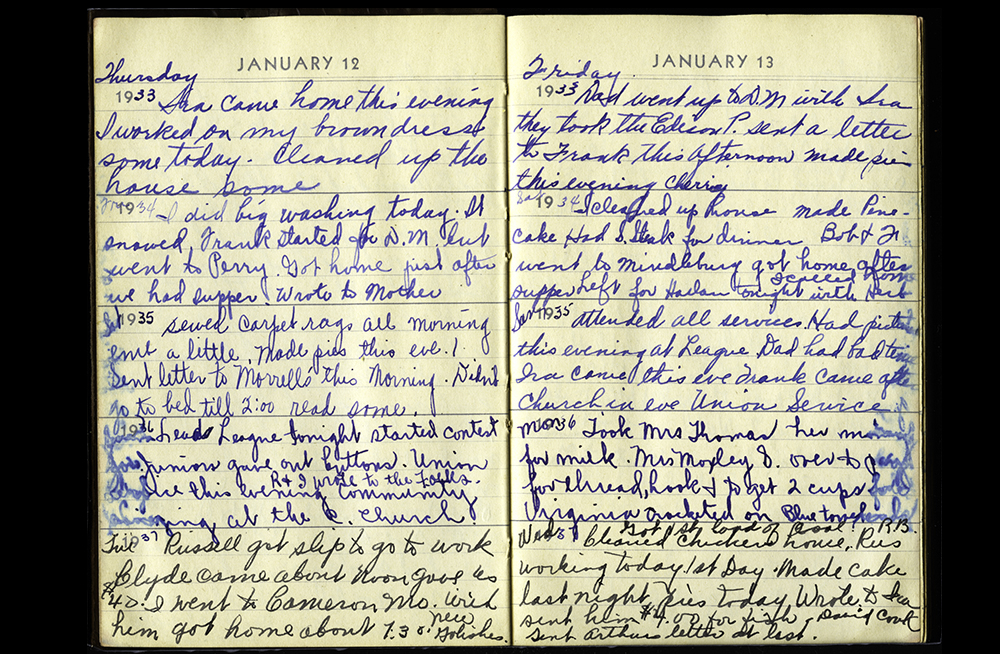 JANUARY 12
Thursday
1933 Ira came home this evening
I worked on my brown dress
some today. Cleaned up the
house some
1934 I did big washing today. It
snowed, Frank started for D.M. but
went to Perry. Got home just after
we had supper. Wrote to Mother
Sat 1935 sewed carpet rags all morning
a little. Made pies this eve.
Sent letter to Morrells this Morning. Didn't
go to bed till 2:00 read some.
1936 Leads League tonight started contest
Juniors gave out buttons. Union
R & I wrote to the Folks.
this evening Community
at the R. Church
Tue 1937 Russell got slip to go to work
Clyde came about Noon gave us
$4 I went to Cameron Mo. with
him got home about 7.30. new
JANUARY 13
Friday.
1933 Dad went up to D.M with Ira
they took the Edison P. sent a letter
to Frank this Afternoon made pies
this evening Cherries
Sat 1934 I cleaned up house made Pine-
cake Had S. Steak for dinner Bob & Fr
went to got home after
supper Left for Harlan tonight with Herb
Sun 1935 attended all services. Had
this evening at League Dad had bad
Ira came this eve Frank came after
Church in eve Union Service
Mon 36 Took Mrs Thomas her
for milk. Mrs Moxley over to
for thread, hook & to get 2 cups
Virginia crocheted on Blue
Got 1st load of Coal RB.
Wed 37 Cleaned Chicken house, Rus
working today 1st Day. Made cake
last night, Pies today Wrote to Ira
sent him $4.00 for David
sent Arthurs letter at last.